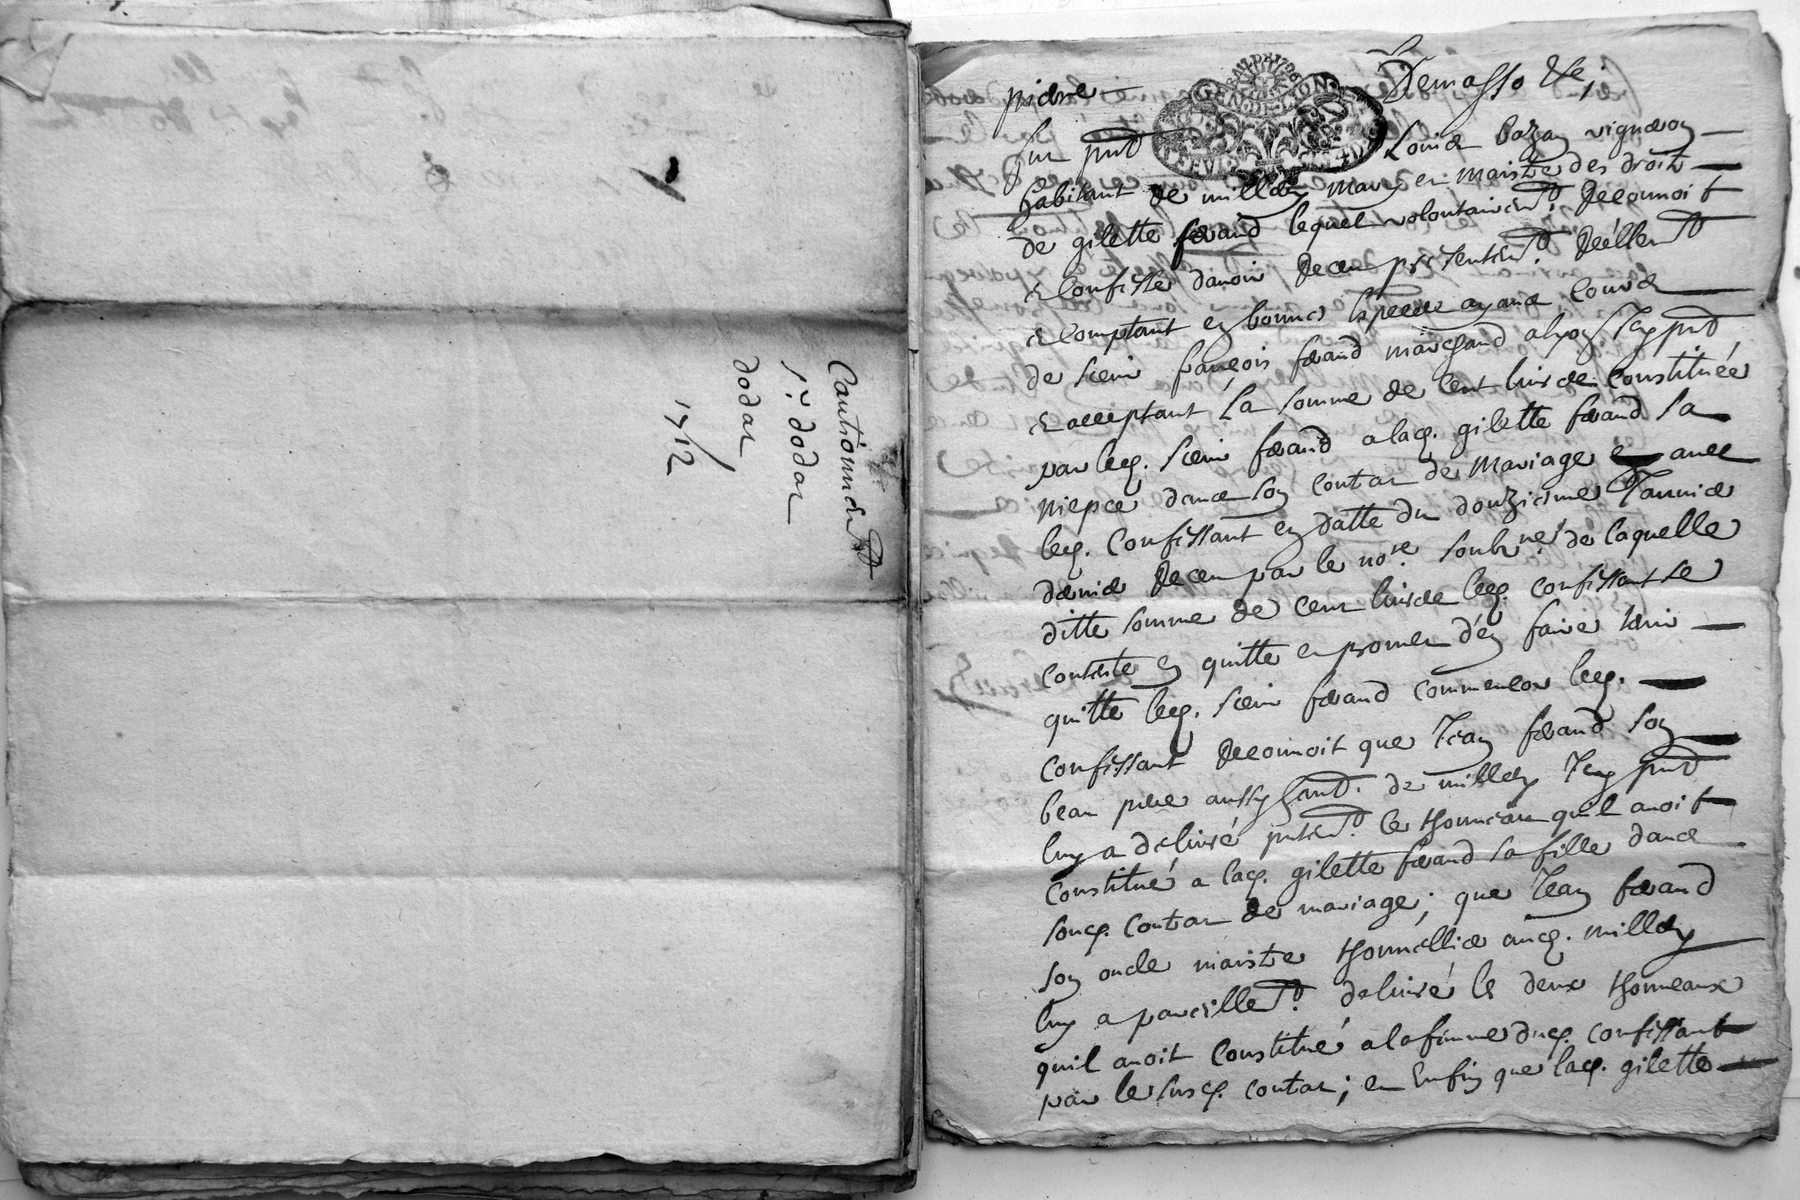 Cautionnem^t
s^r. dodar
dodar
1712
GEN. DE LYON
Demasso &c;
fut p^nt Louis bazan vigneron
habitant de millery mary et maistre des droits
de gilette ferand lequel volontairem^t. Reconnoit
et Confesse d'avoir Receu presentem^t. Réellem^t
et Comptant en bonnes especes ayant Cours
de sieur françois ferand marchand a lyon icy p^nt
et acceptant la somme de Cent livres Constituée
par led. sieur ferand a lad. gilette ferand sa
niepce dans son Contrat de Mariage avec
led. Confessant en datte du douzieme Janvier
dernier Receu par le no^re. soubz^né. de laquelle
ditte somme de Cent livres led. confessant se
contente en quitte et promet d'en faire tenir
quitte led. sieur ferand comme encor led.
Confessant Reconnoit que Jean ferand son
beau pere aussy hant. de millery icy p^nt
luy a delivré p^ntem^t. le thonneau qu'il avoit
Constitué a lad. gilette ferand sa fille dans
sond. Contrat de mariage; que Jean ferand
son oncle maistre thonnellier aud. millery
luy a pareillem^t. delivré les deux thonneaux
quil avoit Constitué a la femme dud. confessant
par le susd. contrat; et Enfin que lad. gilette